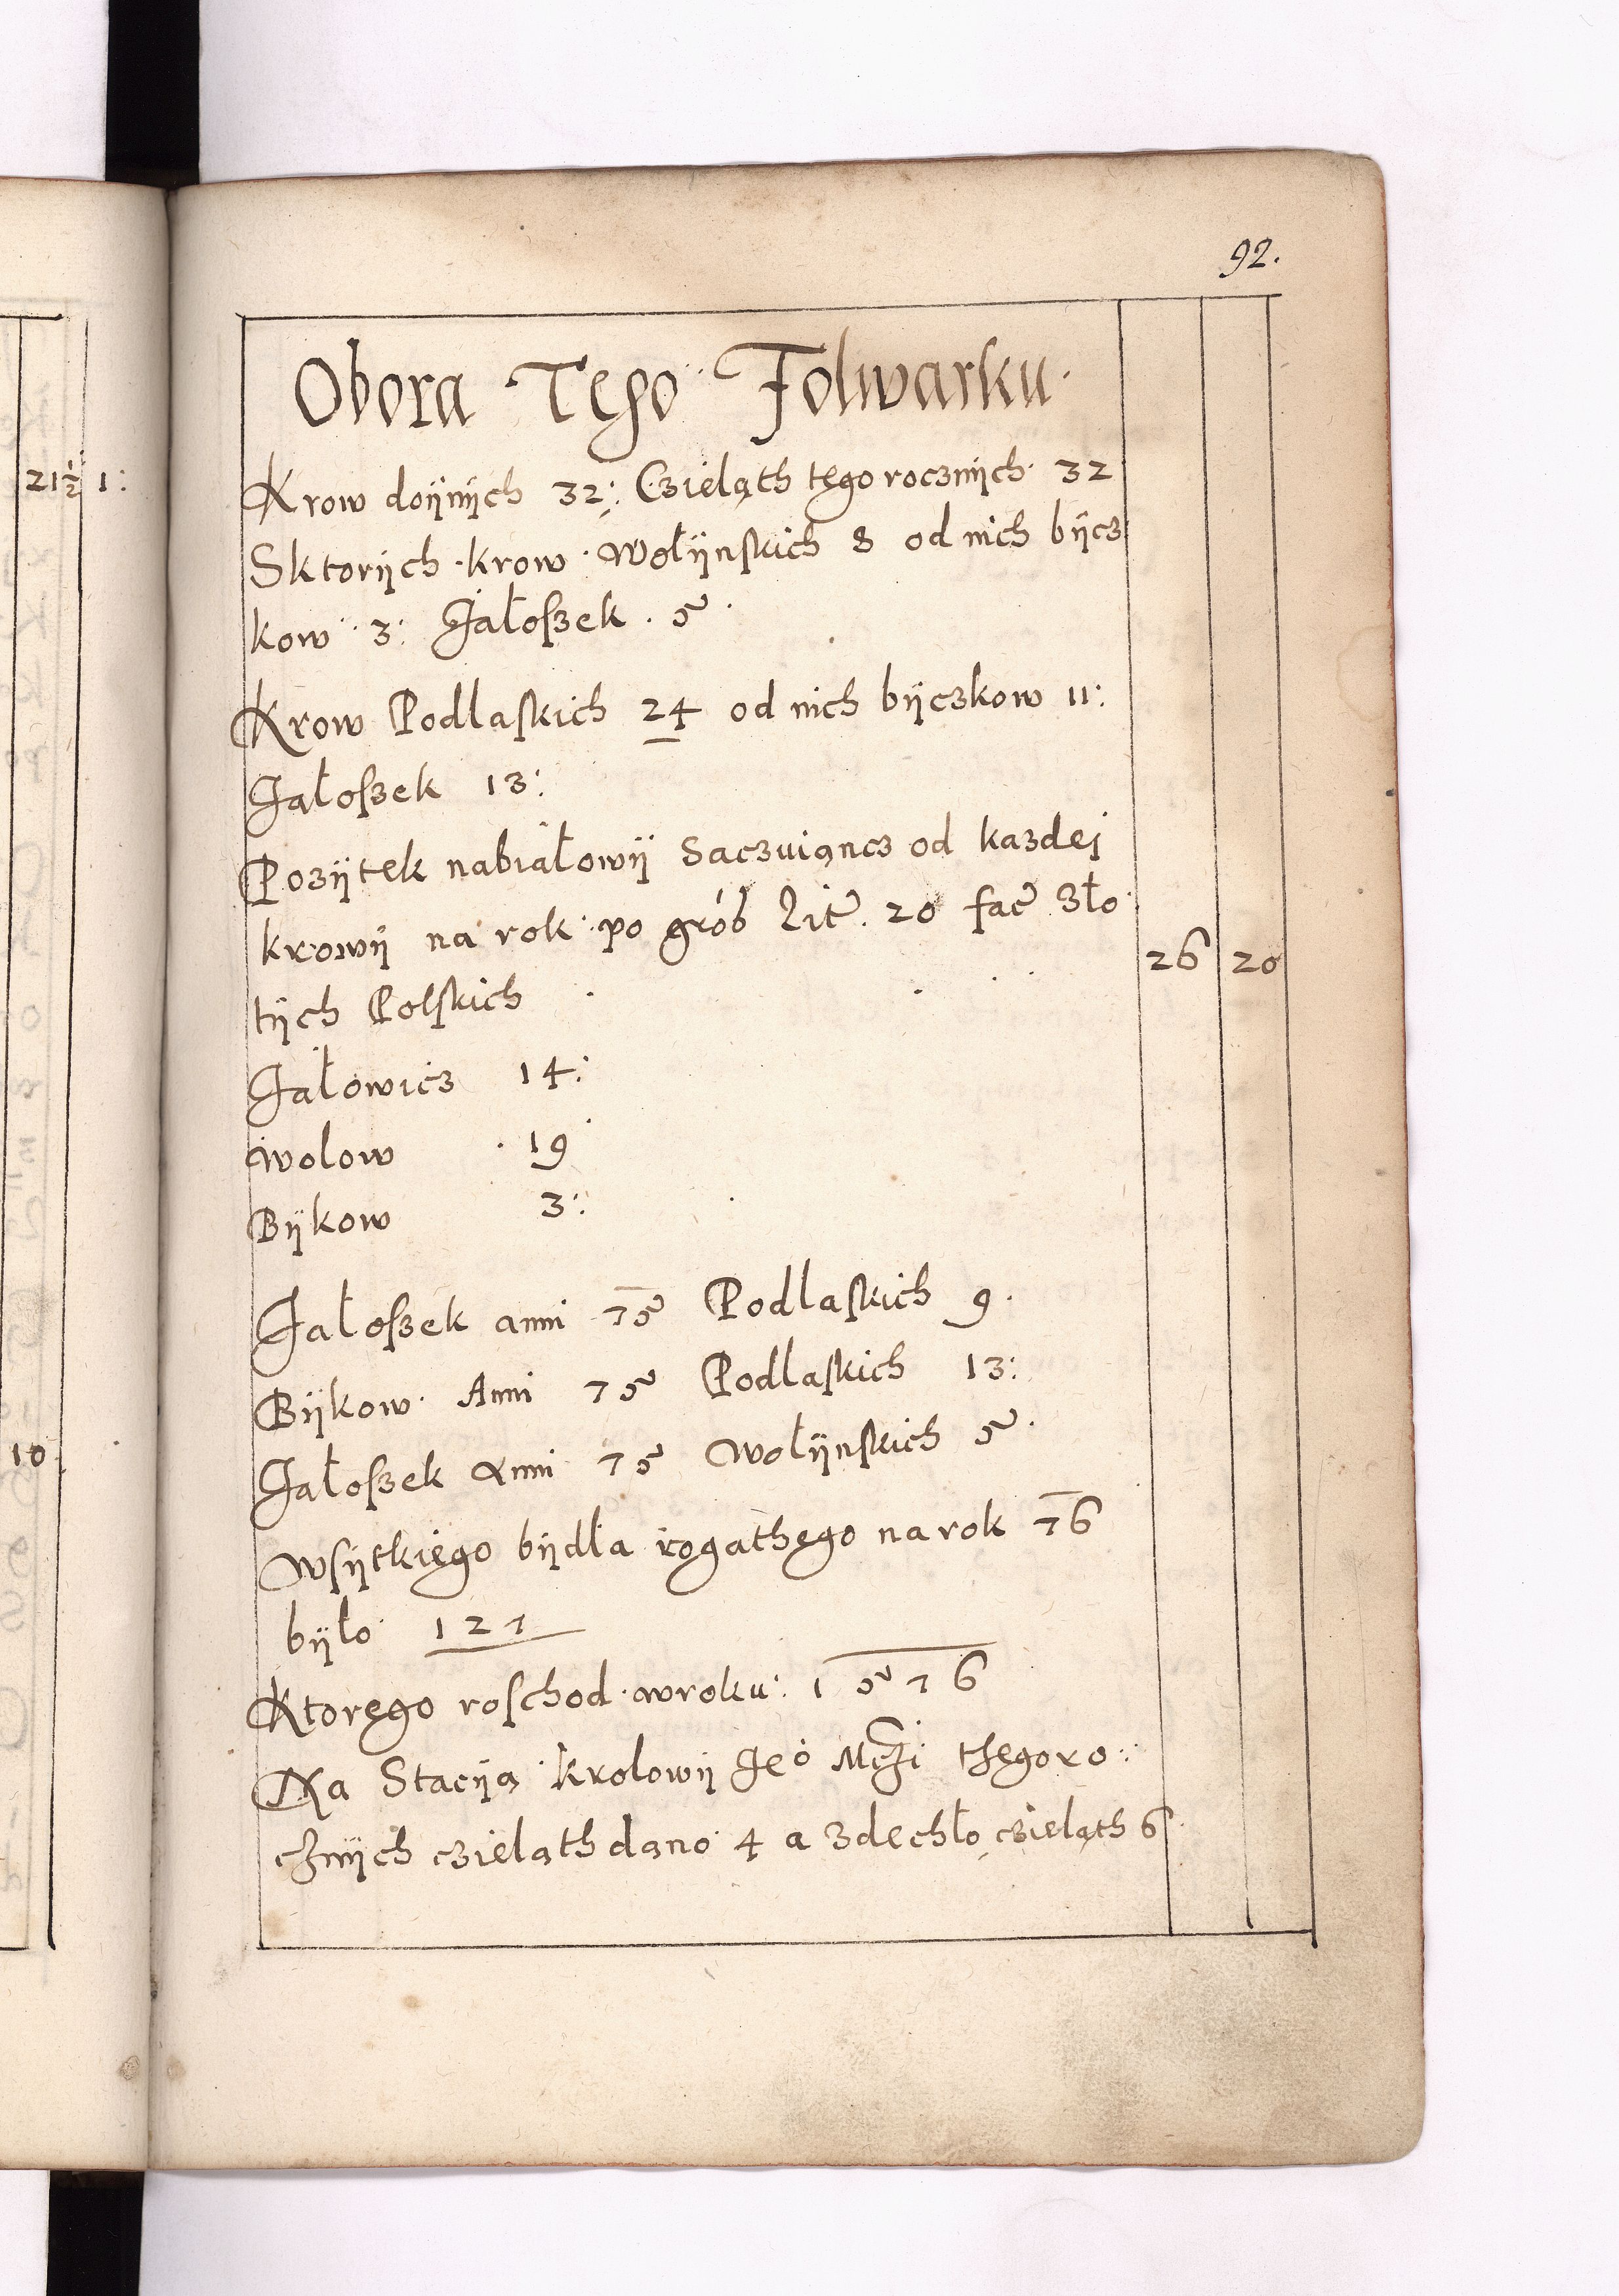 92.
Obora Tego Folwarku
Krow doÿnÿch 32: Czieląth tego rocznÿch 32
Sktorÿch krow Wołÿnskich 8 od nich bÿcz
kow 3: Jałoszek 5
Krow Podlaskich 24 od nich bÿczkow 11:
Jałoszek 13:
Pozÿtek nabiałowÿ Saczuiąncz od kazdej
krowÿ na rok po gróß Lit 20 fac Zło
tÿch Polskich 26 20
Jałowicz 14:
Wolow 19
Bÿkow 3:
Jałoszek anni 75 Podlaskich 9.
Bÿkow Anni 75 Podlaskich 13:
Jałoszek Anni 75 Wołÿnskich 5
Wsÿtkiego bÿdła rogathego na rok 76
bÿło 127
Ktorego roschod wroku: 1576
Na Stacÿą Krolowÿ Jeo Mczi thegoro
cznÿch czieląth dano 4 a zdechło czieląth 6
21½ 1:
10